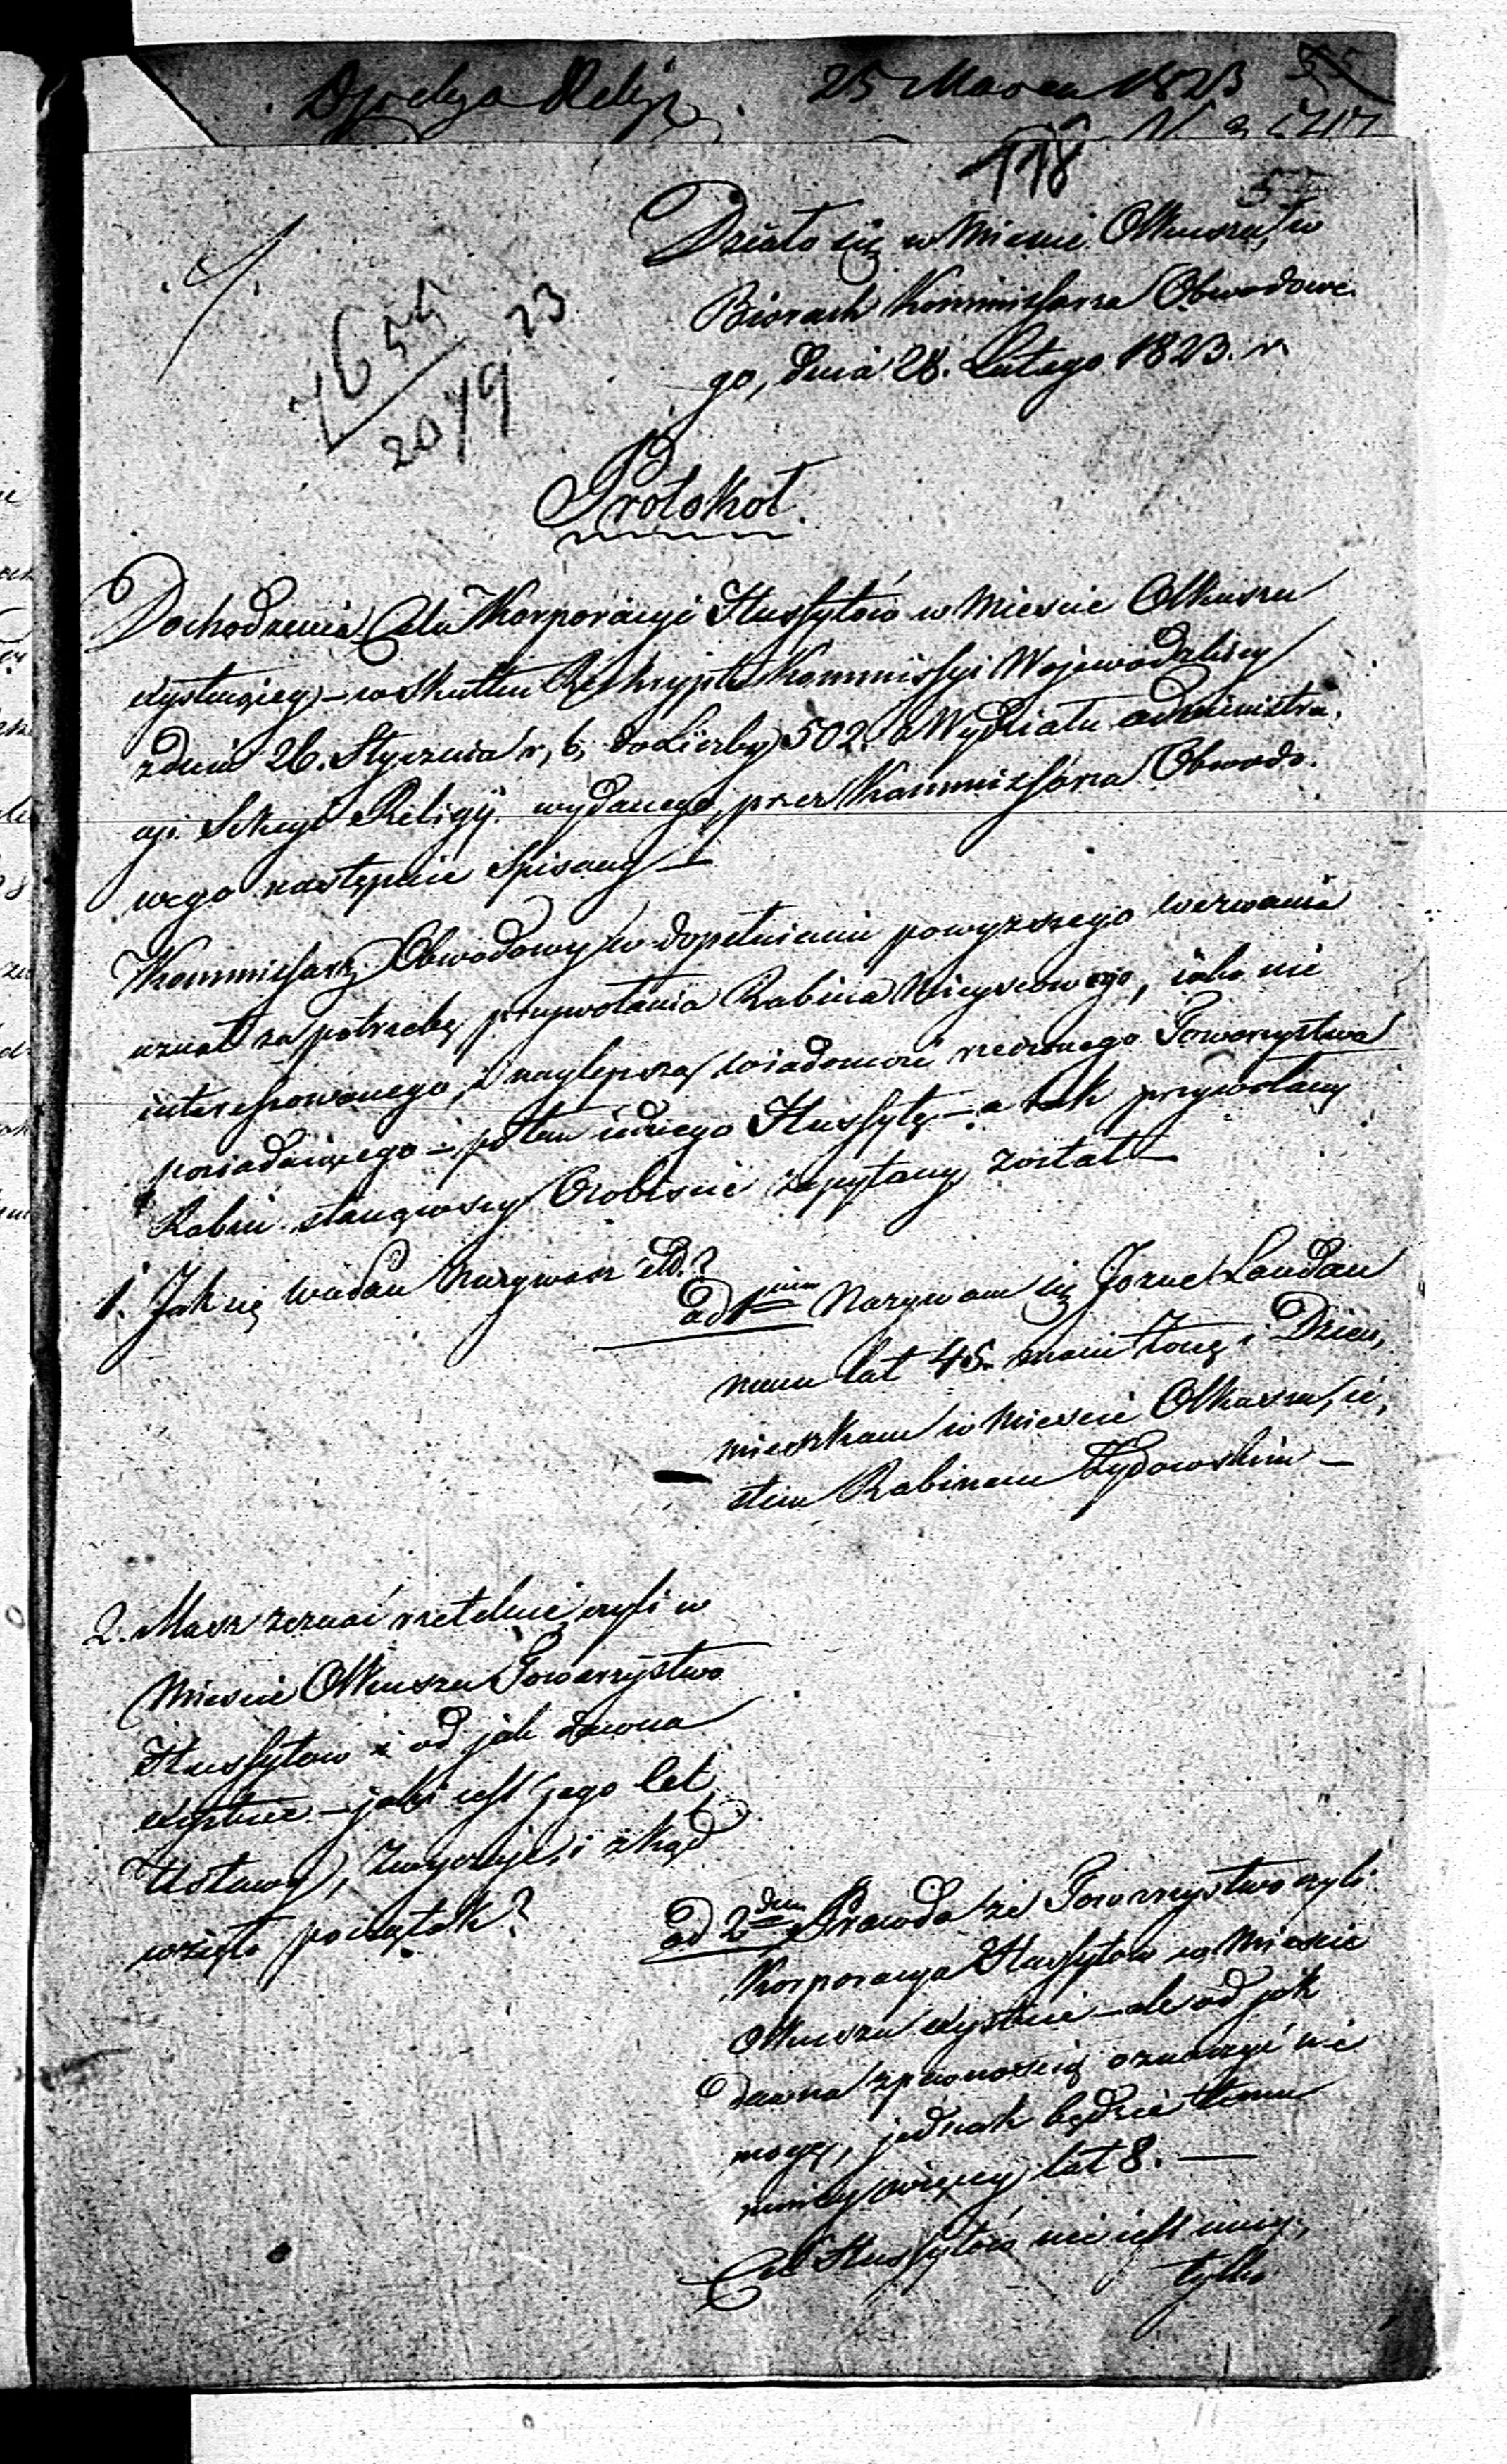 Dyrekcya Religij. 25 Marca 1823 55
N
118
Działo się w Miescie Olkuszu, w
Biorach Kommissarza Obwodowe-
go, dnia 28. Lutego 1823. r.
7654
2079 23
Protokoł.
Dochodzenia Celu Korporacyi Hussytów w Miescie Olkuszu
exystuiącey – w skutku Reskryptu Kommissyi Wojewodzkiey
z dnia 26. Stycznia r, b, do Liczby 502. z Wydziału administra-
cyi. Sekcyi Religij. wydanego, przez Kommissarza Obwodo-
wego następnie Spisany –
Kommissarz Obwodowy w dopełnieniu powyższego wezwania
uznał za potrzebę przywołania Rabina Mieyscowego, iako nie
interessowanego, i naylepszą wiadomość rzeczonego Towarzystwa
posiadaiącego – potem iednego Hussytę – a tak przywołany
Rabin stanąwszy Osobiscie zapytany został –
1. Jak się Wadan nazywasz etd.?
ad 1mum Nazywam się Jozue Landau
mam lat 45. mam żonę i Dzieci,
mieszkam w Miescie Olkuszu, ie-
stem Rabinem Żydowskim –
2. Masz zeznać rzetelnie czyli w
Miescie Olkuszu Towarzystwo
Hussytow i od jak dawna
exystuie – jaki iest jego cel,
Ustawy, Zwyczaje, i zkąd
wzięło początek?
ad 2dum Prawda że Towarzystwo czyli
Korporacya Hussytow w Miescie
Olkuszu exystuie – ale od jak
dawna z pewnością oznaczyć nie
mogę, jednak będzie temu
mniey więcey lat 8. –
Cel Hussytów nie iest inny,
tylko